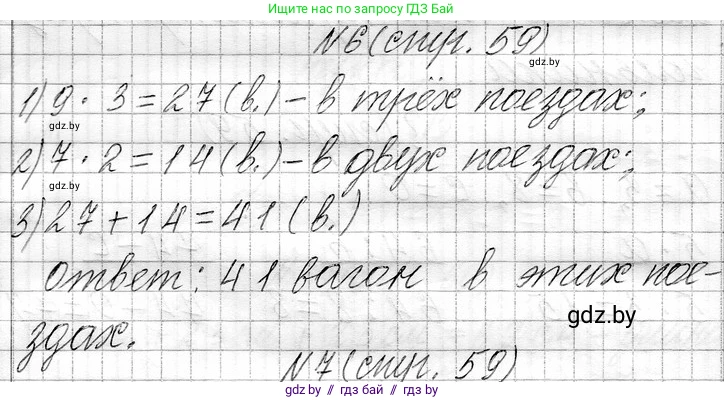 Ищите нас по запросу ГДЗ.БАЙ
№6 (стр. 59)
gdz.by
1) 9 · 3 = 27 (в.) – в трёх поездах;
gdz.by
2) 7 · 2 = 14 (в.) – в двух поездах;
gdz.by
3) 27 + 14 = 41 (в.)
Ответ: 41 вагон в этих пое-
gdz.by
здах.
№7 (стр. 59)
gdz.by // гдз бай // gdz.by